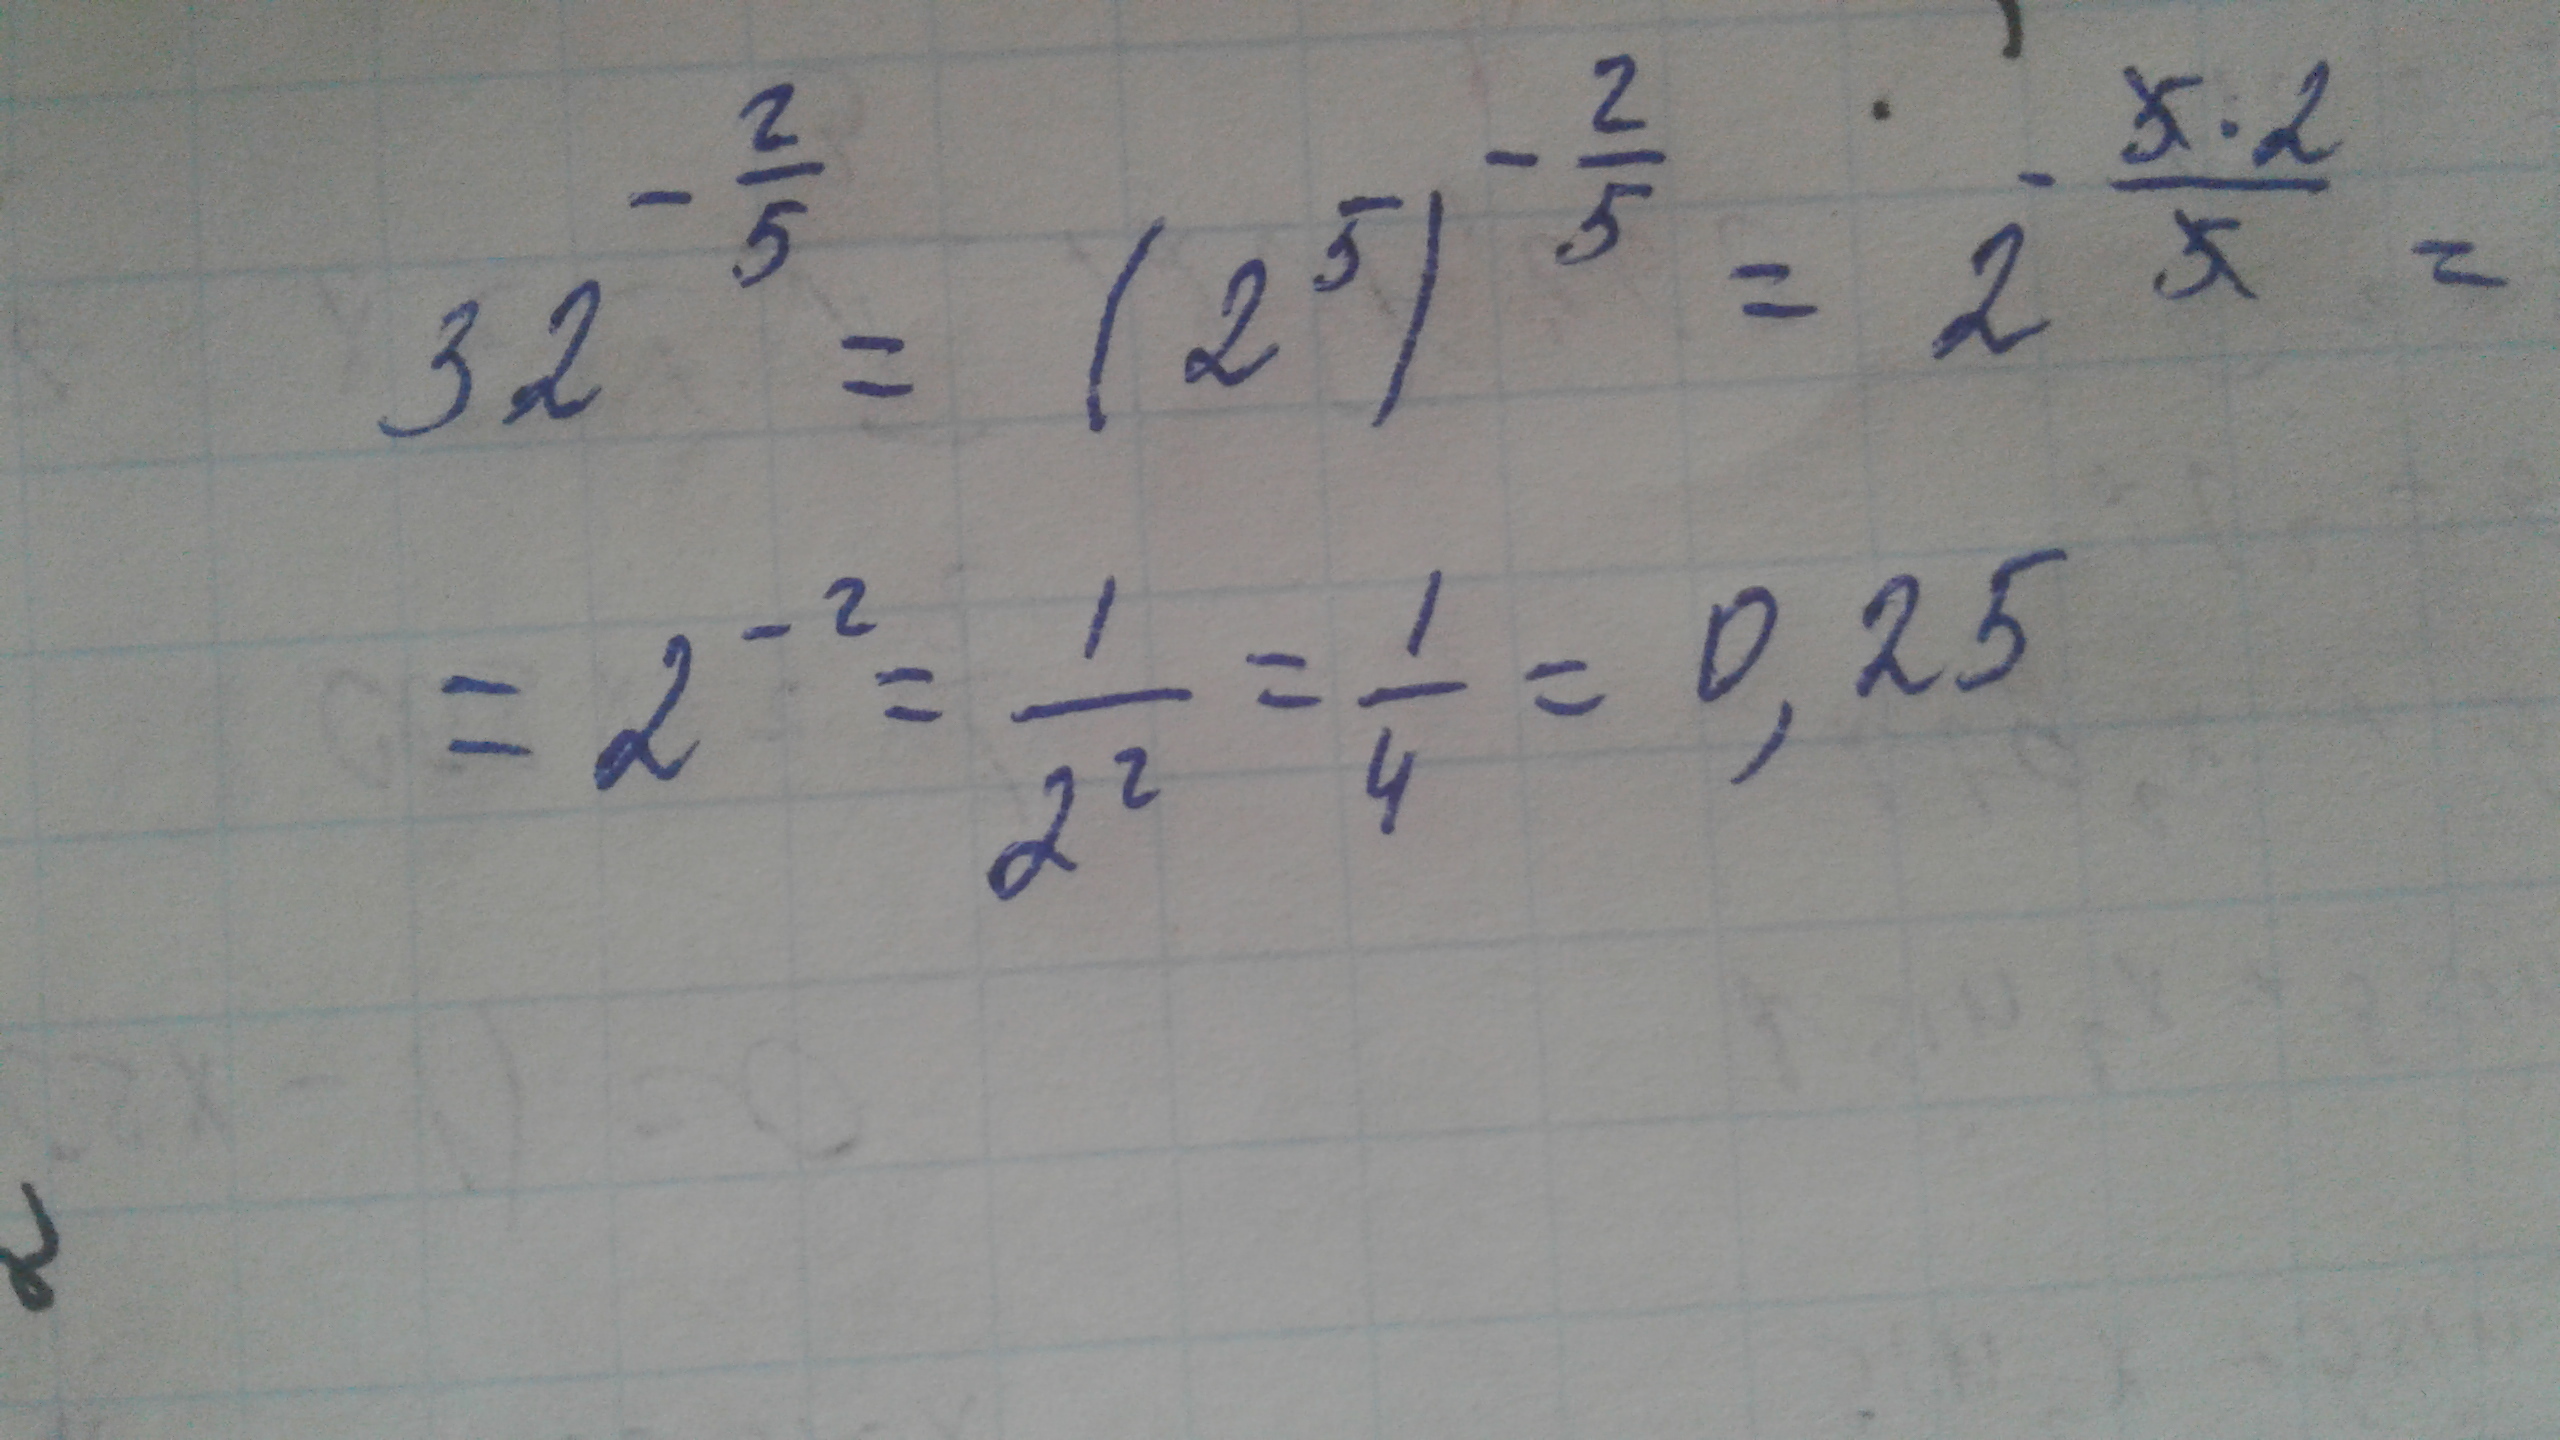 32^{-\frac{2}{5}} = (2^5)^{-\frac{2}{5}} = 2^{-\frac{5·2}{5}} =
= 2^{-2} = \frac{1}{2^2} = \frac{1}{4} = 0,25